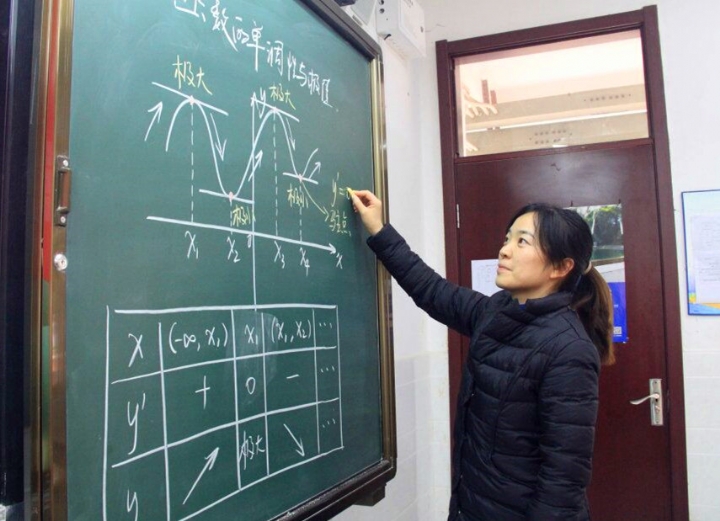 函数的单调性与极值
极大 y 极大
y'=
极小 极小 驻点
x₁ x₂ 0 x₃ x₄ x
x (-∞, x₁) x₁ (x₁, x₂) ...
y' + 0 − ...
y ↗ 极大 ↘ ...